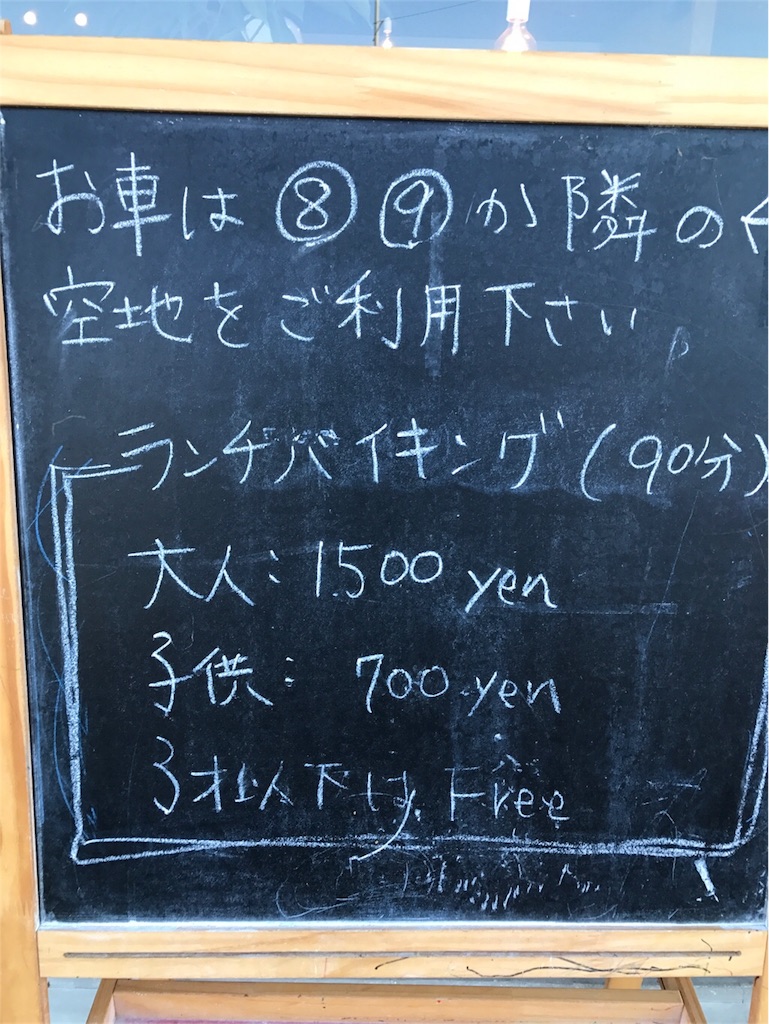 お車は ⑧ ⑨ か 隣の←
空地をご利用下さい。
ランチバイキング (90分)
大人: 1,500 yen
子供: 700 yen
3才以下は Free